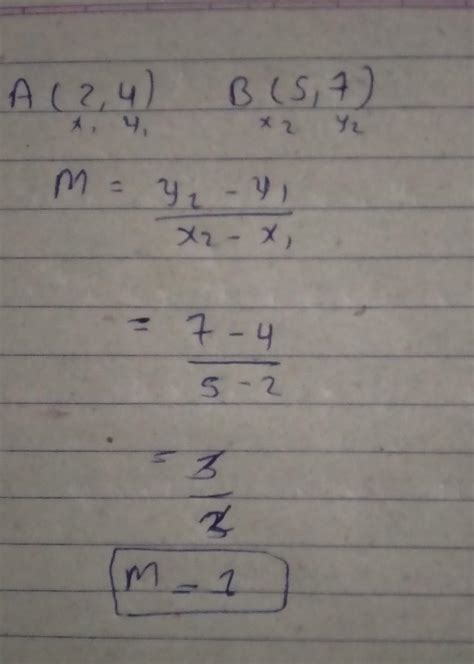 A (2, 4) B (5, 7)
x₁ y₁ x₂ y₂
M = y₂ - y₁
x₂ - x₁
= 7 - 4
5 - 2
= 3
3
M = 1